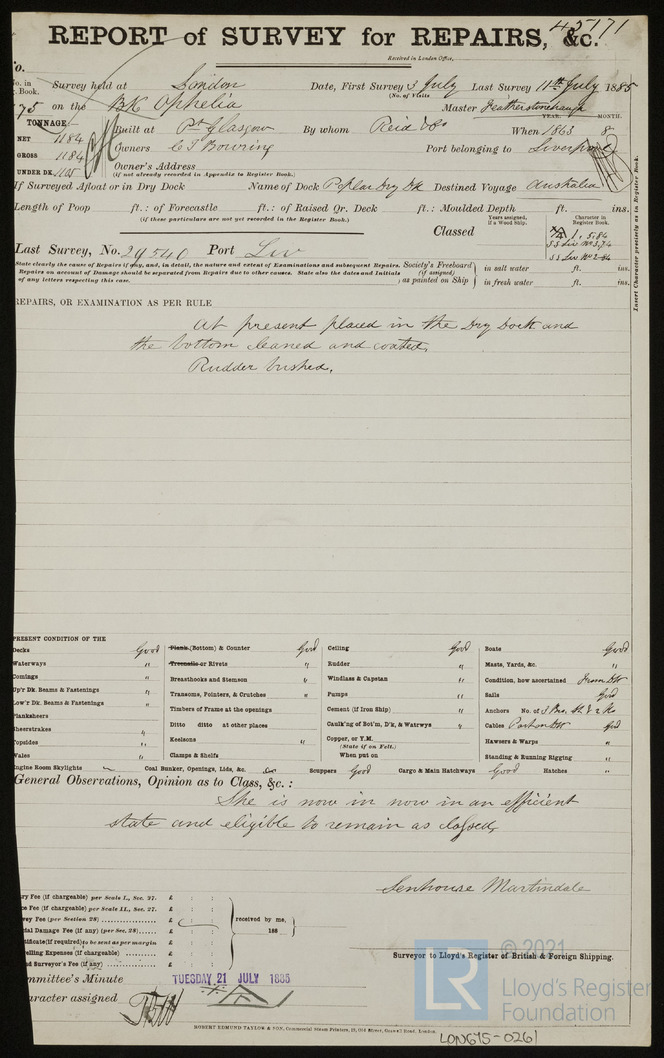 45171
REPORT of SURVEY for REPAIRS, &c.
Received in London Office,
No. in Survey held at London Date, First Survey 3 July Last Survey 11th July 1885
Book. (No. of Visits
75 on the BK Ophelia Master Featherstonehaugh
TONNAGE YEAR. MONTH.
NET 1184 Built at Pt Glasgow By whom Reid & Co When 1863 8
GROSS 1184 Owners C T Bowring Port belonging to Liverpool
UNDER DK. 1105 Owner's Address
(if not already recorded in Appendix to Register Book.)
If Surveyed Afloat or in Dry Dock Name of Dock Poplar Dry Dk Destined Voyage Australia
Length of Poop ft.: of Forecastle ft.: of Raised Qr. Deck ft.: Moulded Depth ft. ins.
(if these particulars are not yet recorded in the Register Book.)
Years assigned, if a Wood Ship. Character in Register Book.
Classed A 1, 5,84
Last Survey, No. 29540 Port Liv
S S Liv No 3,74
S S Liv No 2-84
State clearly the cause of Repairs if any, and, in detail, the nature and extent of Examinations and subsequent Repairs.
Repairs on account of Damage should be separated from Repairs due to other causes. State also the dates and Initials
of any letters respecting this case.
Society's Freeboard (if assigned) as painted on Ship
in salt water ft. ins.
in fresh water ft. ins.
Insert Character precisely as in Register Book.
REPAIRS, OR EXAMINATION AS PER RULE
At present placed in the Dry Dock and
the bottom cleaned and coated,
Rudder bushed.
PRESENT CONDITION OF THE
Decks Good
Waterways "
Comings "
Up'r Dk. Beams & Fastenings "
Low'r Dk. Beams & Fastenings "
Planksheers
Sheerstrakes "
Topsides "
Wales "
Engine Room Skylights
Plank (Bottom) & Counter Good
Treenails or Rivets "
Breasthooks and Stemson "
Transoms, Pointers, & Crutches "
Timbers of Frame at the openings
Ditto ditto at other places
Keelsons "
Clamps & Shelfs
Coal Bunker, Openings, Lids, &c.
Ceiling Good
Rudder "
Windlass & Capstan "
Pumps "
Cement (if Iron Ship) "
Caulk'g of Bot'm, D'k, & Watrwys "
Copper, or Y.M.
(State if on Felt.)
When put on
Scuppers Good Cargo & Main Hatchways Good Hatches "
Boats Good
Masts, Yards, &c. "
Condition, how ascertained From Dk
Sails Good
Anchors No. of 3 Bro. St & 2 Ke
Cables Good
Hawsers & Warps "
Standing & Running Rigging "
General Observations, Opinion as to Class, &c. :
She is now in now in an efficient
state and eligible to remain as classed,
Senhouse Martindale
Surveyor to Lloyd's Register of British & Foreign Shipping.
ry Fee (if chargeable) per Scale I., Sec. 27. £ : :
ce Fee (if chargeable) per Scale II., Sec. 27. £ : :
vey Fee (per Section 28) £ : :
cial Damage Fee (if any) (per Sec. 28) £ : :
rtificate (if required) to be sent as per margin
velling Expenses (if chargeable) £ : :
nd Surveyor's Fee (if any) £ : :
received by me,
188
mmittee's Minute TUESDAY 21 JULY 1885
aracter assigned
ROBERT EDMUND TAYLOR & SON, Commercial Steam Printers, 19, Old Street, Goswell Road, London.
© 2021
LR
Lloyd's Register
Foundation
LON675-0261